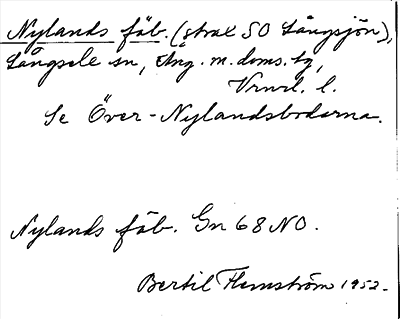 Nylands fäb. (strax SO Långsjön),
Långsele sn, Ång. m. doms. tg,
Vrwd. l.
Se Över-Nylandsbodarna.
Nylands fäb. Gn 68 NO.
Bertil Flemström 1952.